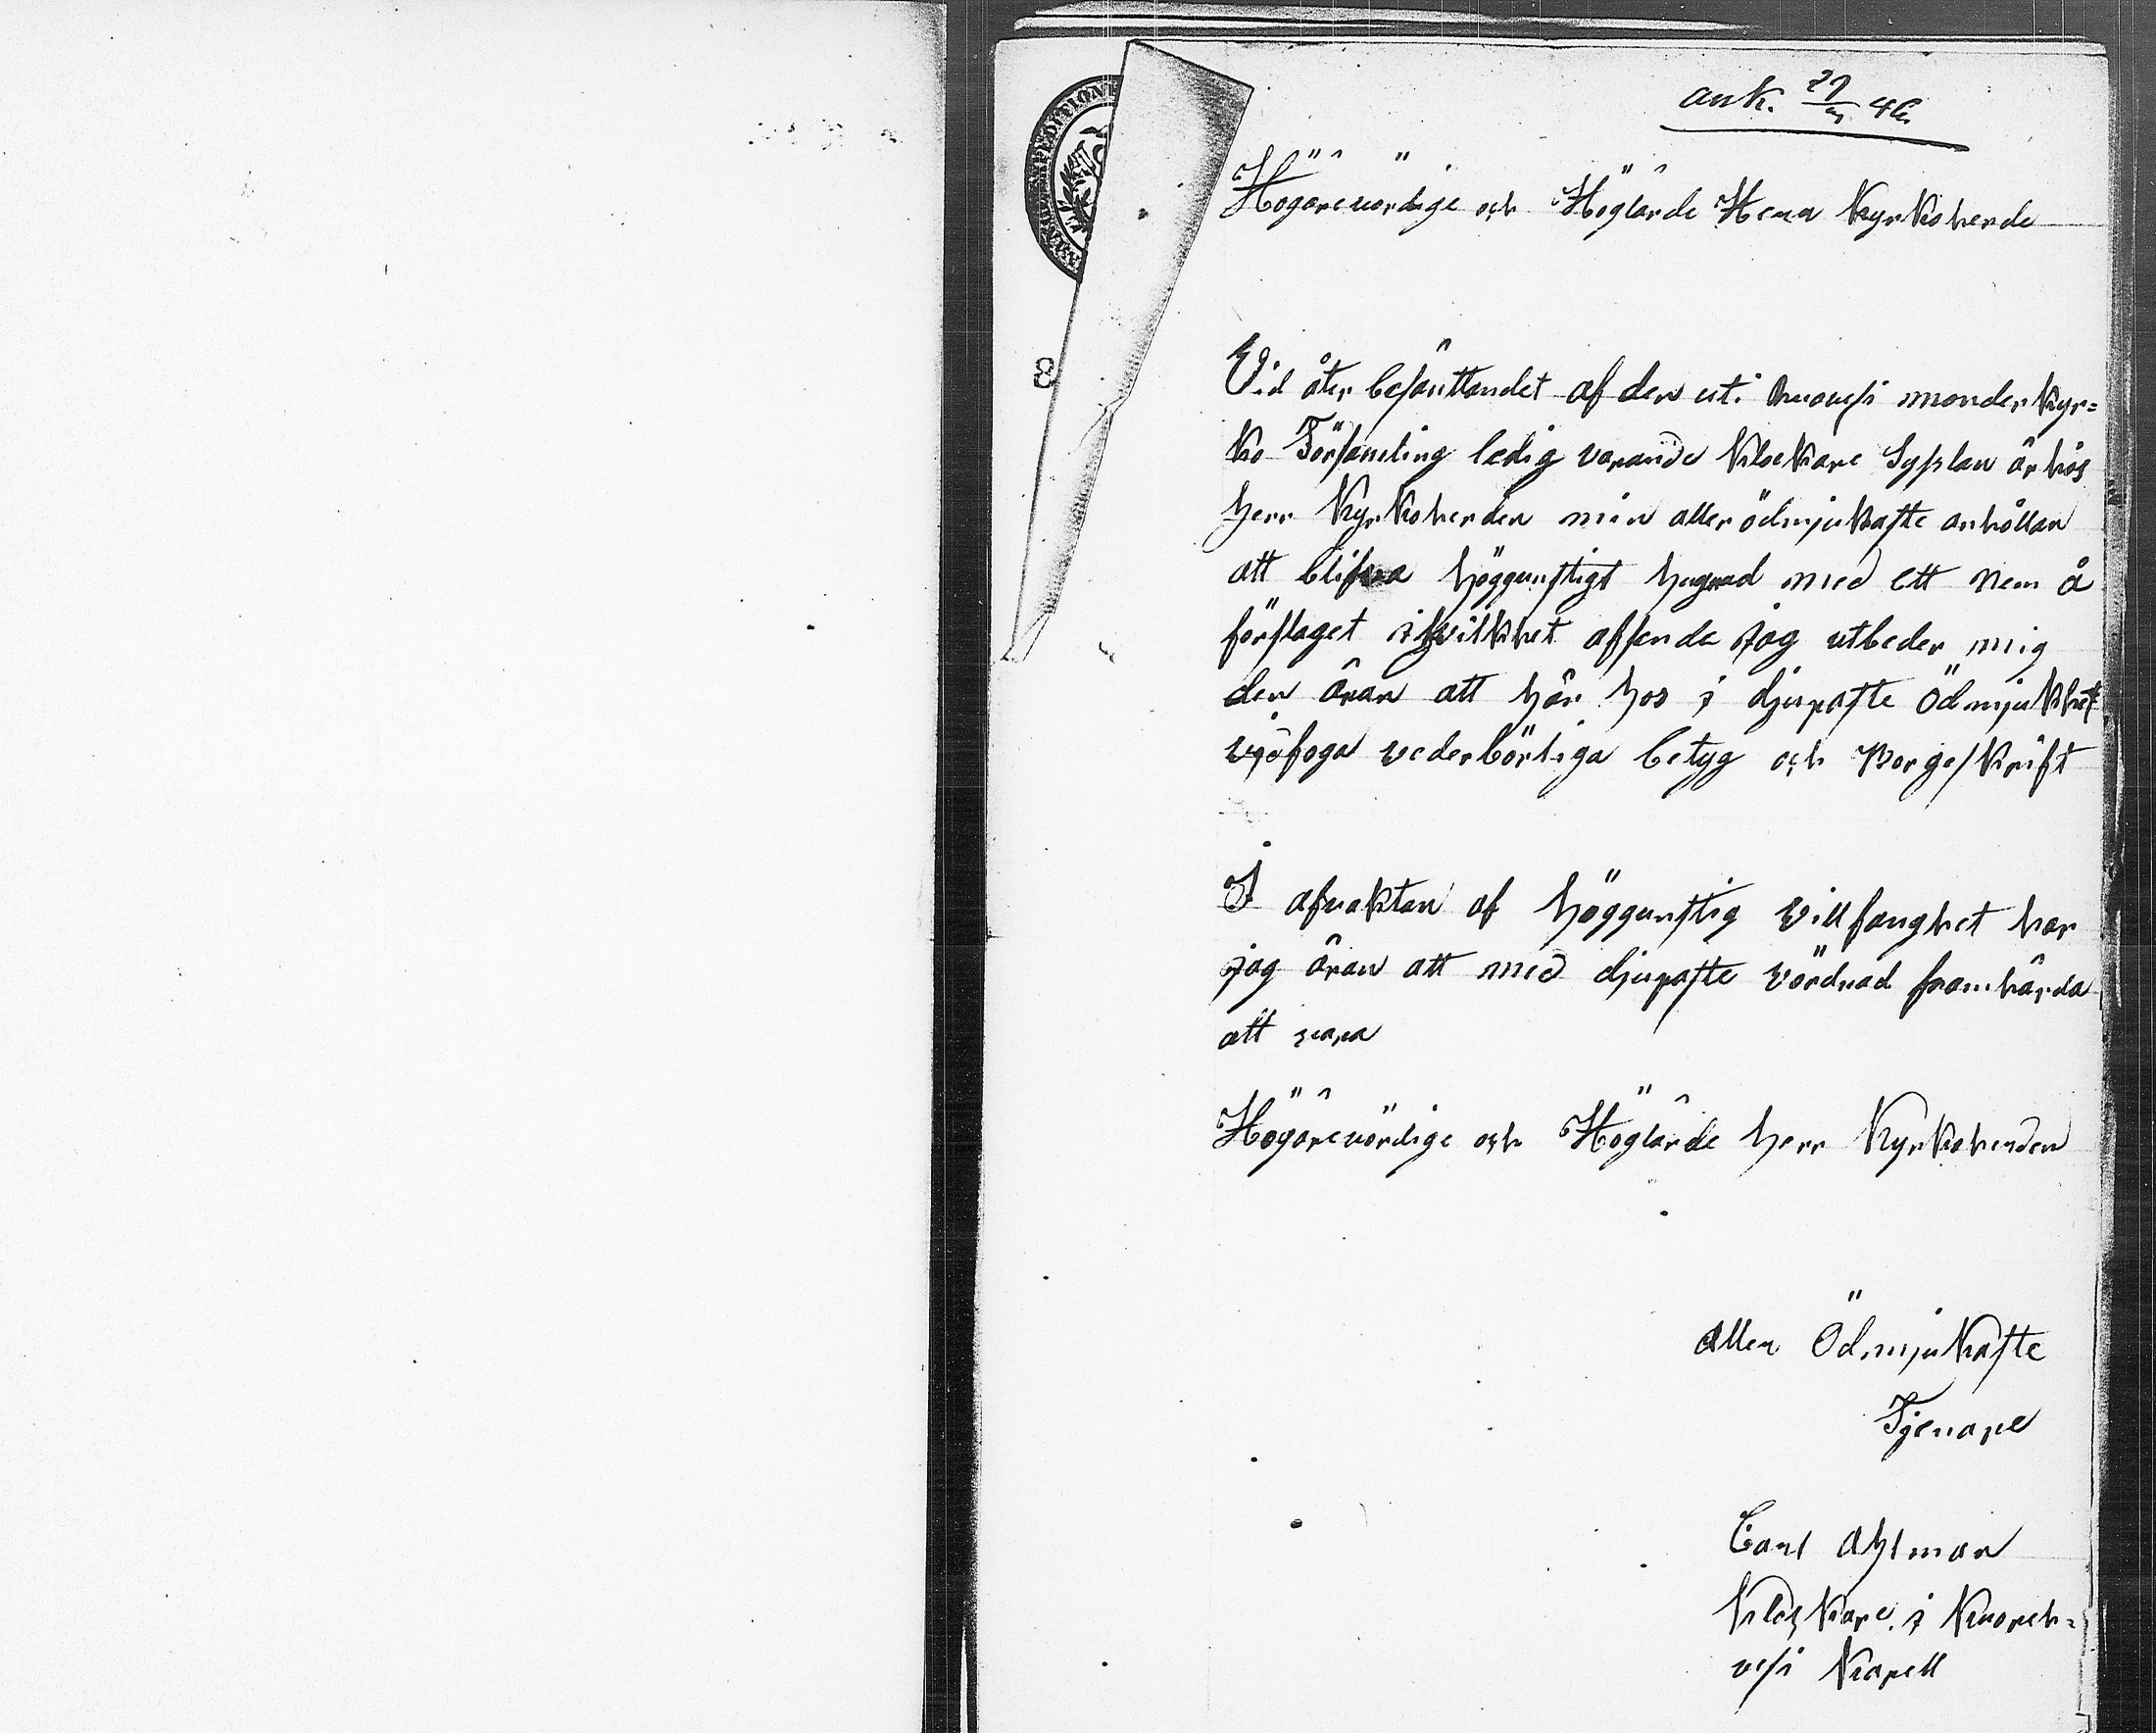 ank. 27/ 46
Högärevördige och Höglärde Herr Kyrkoherde
Vid åter besättandet af den uti Ruovesi moderkyr=
ko Församling ledig varande klockare Sysslan är hos
Herr Kyrkoherden min aller ödmjukaste anhållan
att blifva höggunstigt hugnad med ett rum å
förslaget i hvilkket afseende jag utbeder mig
den äran att här hos i djupaste Ödmjukhet
vjdfoga vederbörliga betyg och Borgeskrift
I afvaktan af höggunstig villfarighet har
jag äran att med djupaste vördnad framhärda
att vara
Högärevördige och Höglärde Herr Kyrkoherden
aller Ödmjukaste
Tjenare
Carl Ahlman
klockare i Kuoreh=
vesi Kapell